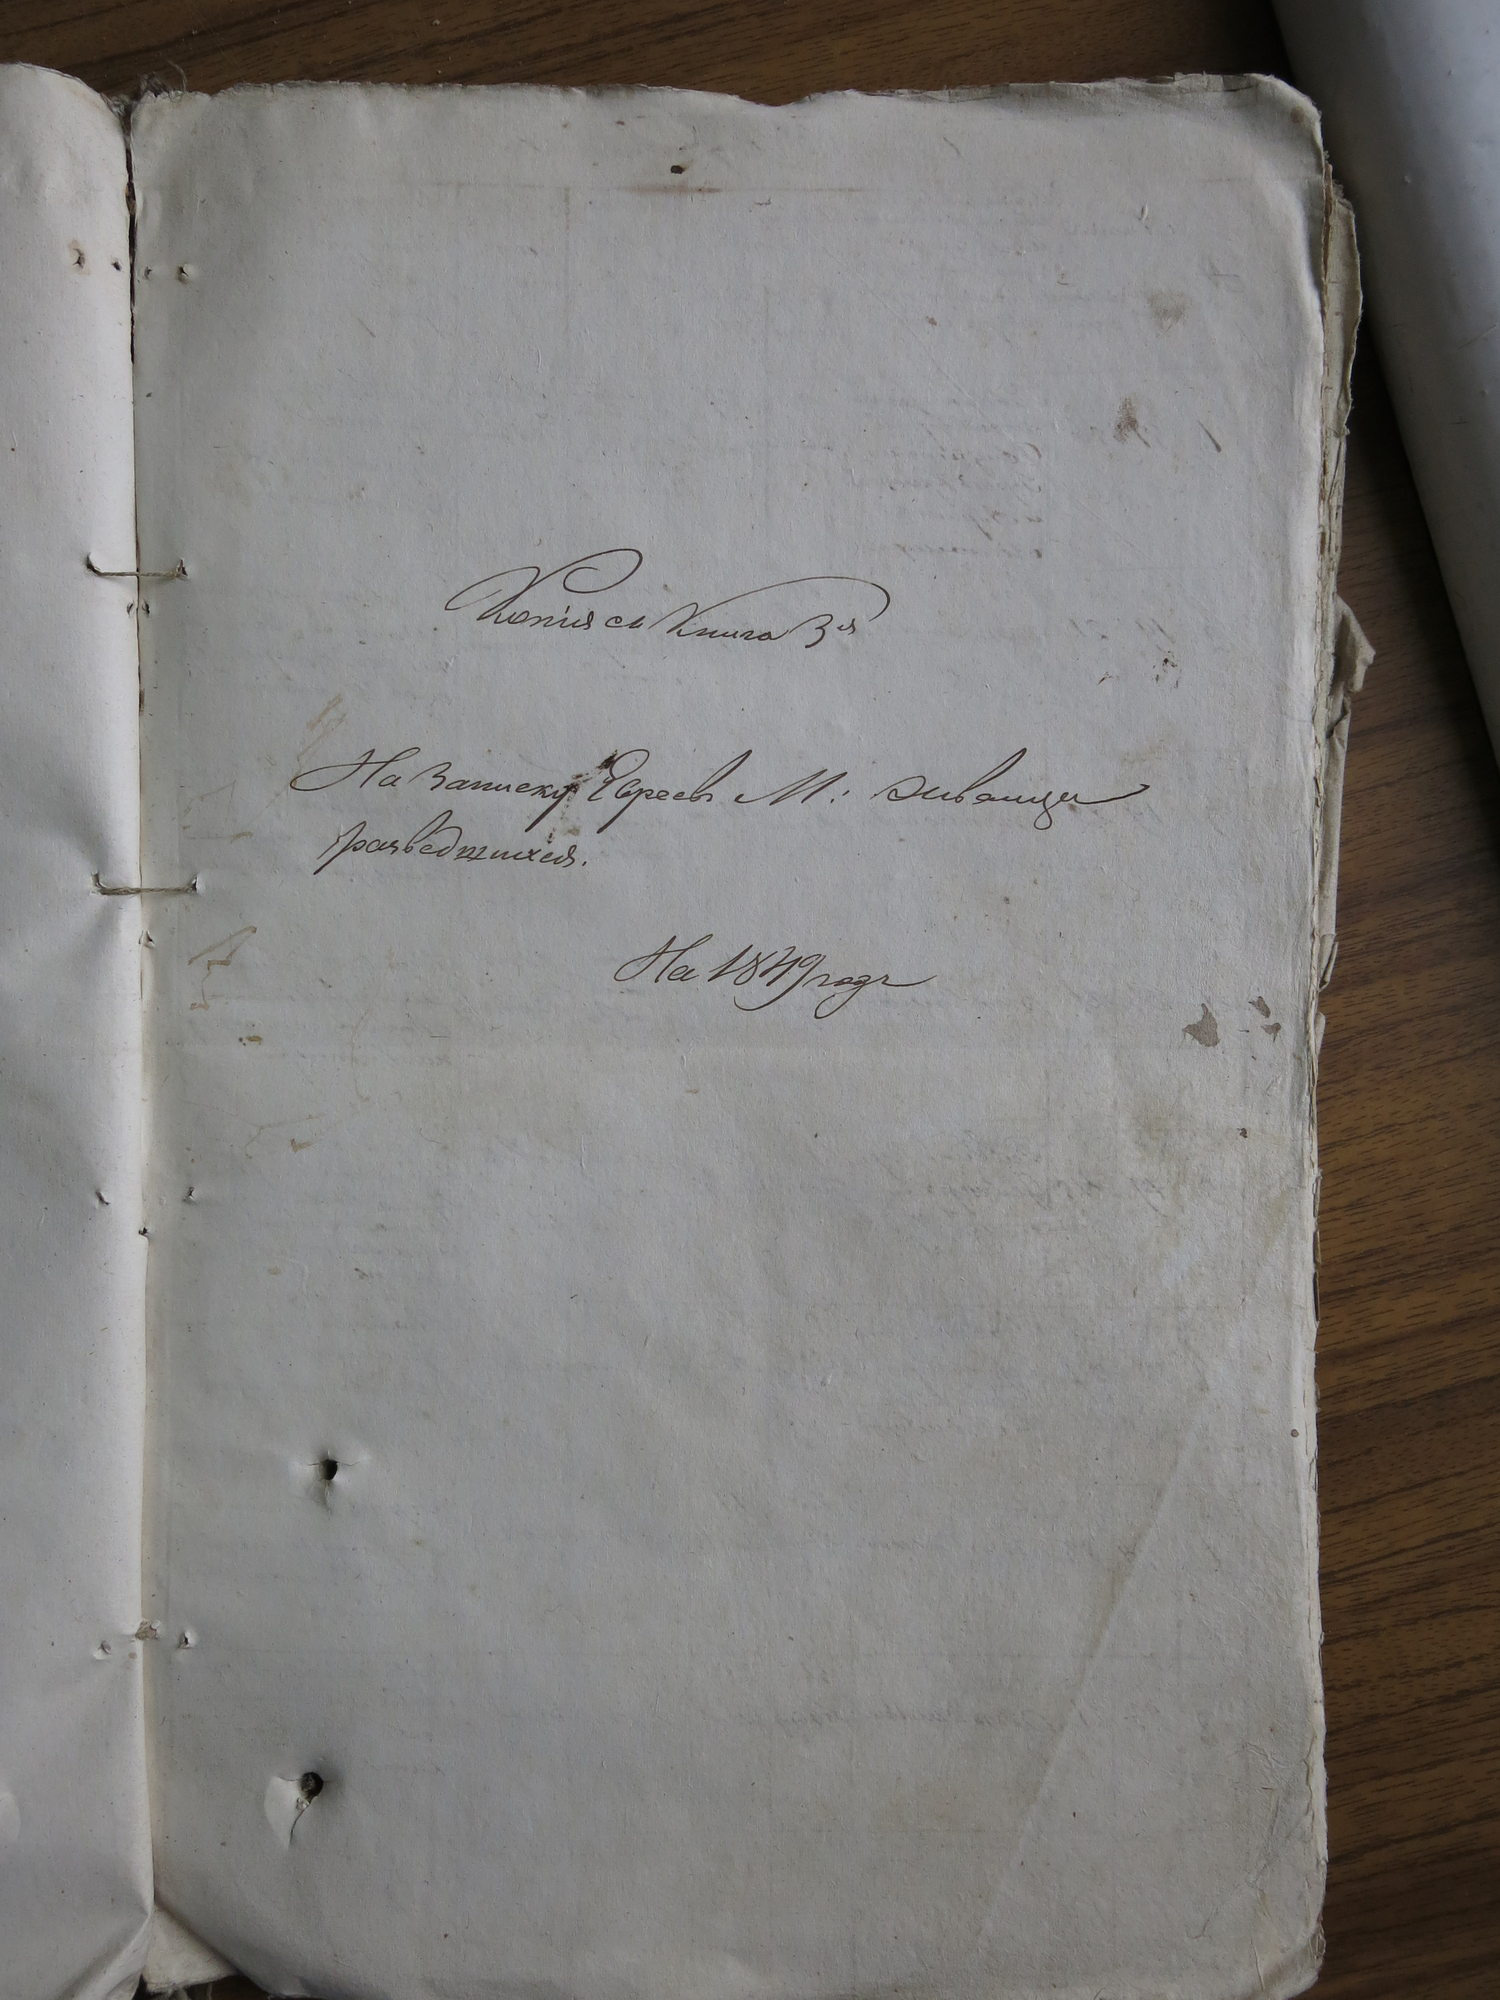 Копія съ Книга 3я
На Записку Евреевъ М: Живанца
разведшихся.
На 1849 годъ